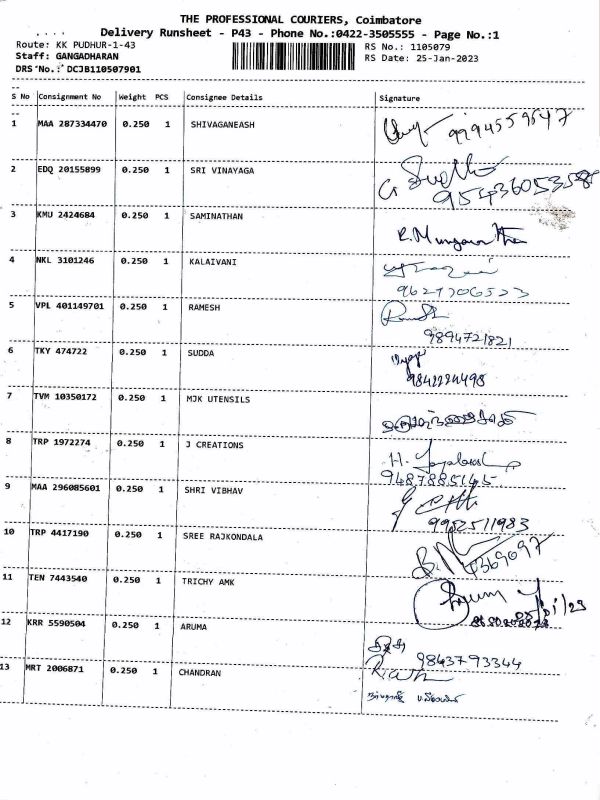 THE PROFESSIONAL COURIERS, Coimbatore
Delivery Runsheet - P43 - Phone No.:0422-3505555 - Page No.:1
Route: KK PUDHUR-1-43 RS No.: 1105079
Staff: GANGADHARAN RS Date: 25-Jan-2023
DRS No.: DCJB110507901
S No Consignment No Weight PCS Consignee Details Signature
1 MAA 287334470 0.250 1 SHIVAGANEASH 9994559547
2 EDQ 20155899 0.250 1 SRI VINAYAGA
3 KMU 2424684 0.250 1 SAMINATHAN
4 NKL 3101246 0.250 1 KALAIVANI
5 VPL 401149701 0.250 1 RAMESH
9894721821
6 TKY 474722 0.250 1 SUDDA
7 TVM 10350172 0.250 1 MJK UTENSILS
8 TRP 1972274 0.250 1 J CREATIONS
9487885145
9 MAA 296085601 0.250 1 SHRI VIBHAV
9952511983
10 TRP 4417190 0.250 1 SREE RAJKONDALA
11 TEN 7443540 0.250 1 TRICHY AMK
12 KRR 5590504 0.250 1 ARUMA
9843793344
13 MRT 2006871 0.250 1 CHANDRAN